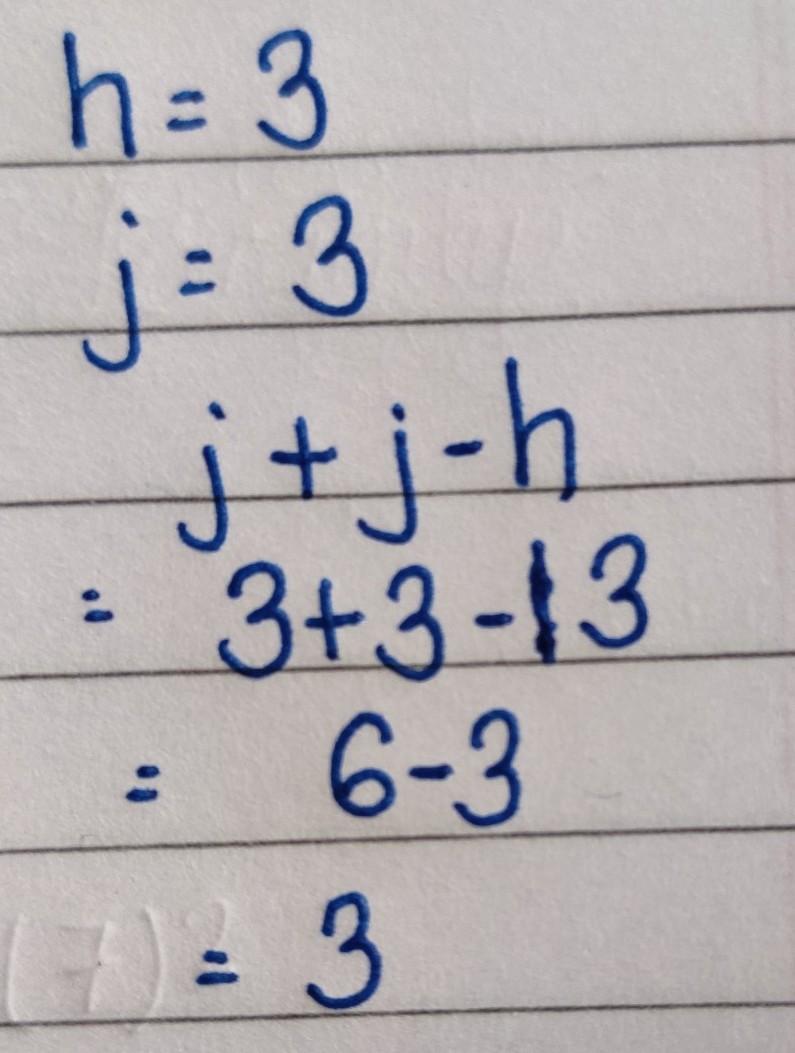 h = 3
j = 3
j + j - h
= 3 + 3 - 13
= 6 - 3
= 3